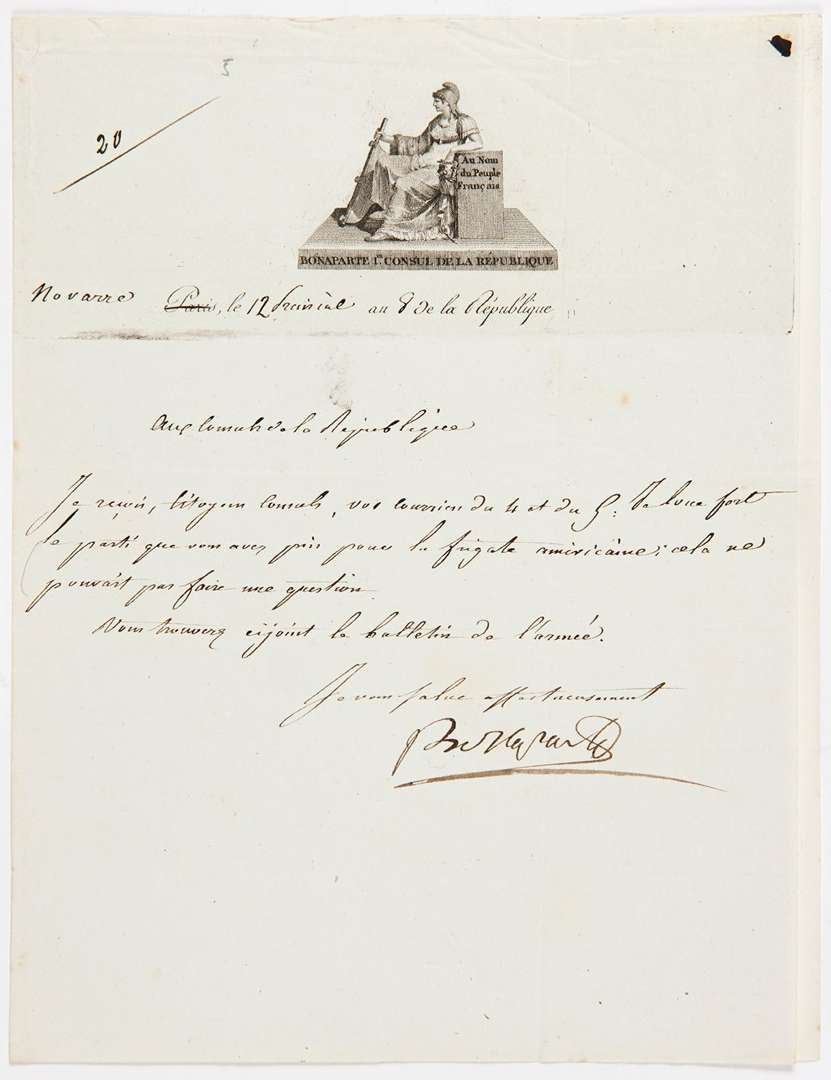 5
20
Au Nom
du Peuple
Français
BONAPARTE 1er. CONSUL DE LA RÉPUBLIQUE
Novarre Paris, le 12 prairial an 8 de la République
Aux Consuls de la République
Je reçois, Citoyens Consuls, vos courriers du 4 et du 5. Je loue fort
le parti que vous avez pris pour la frégate américaine; cela ne
pouvait pas faire une question.
Vous trouverez cijoint le bulletin de l'armée.
Je vous salue affectueusement
Bonaparte